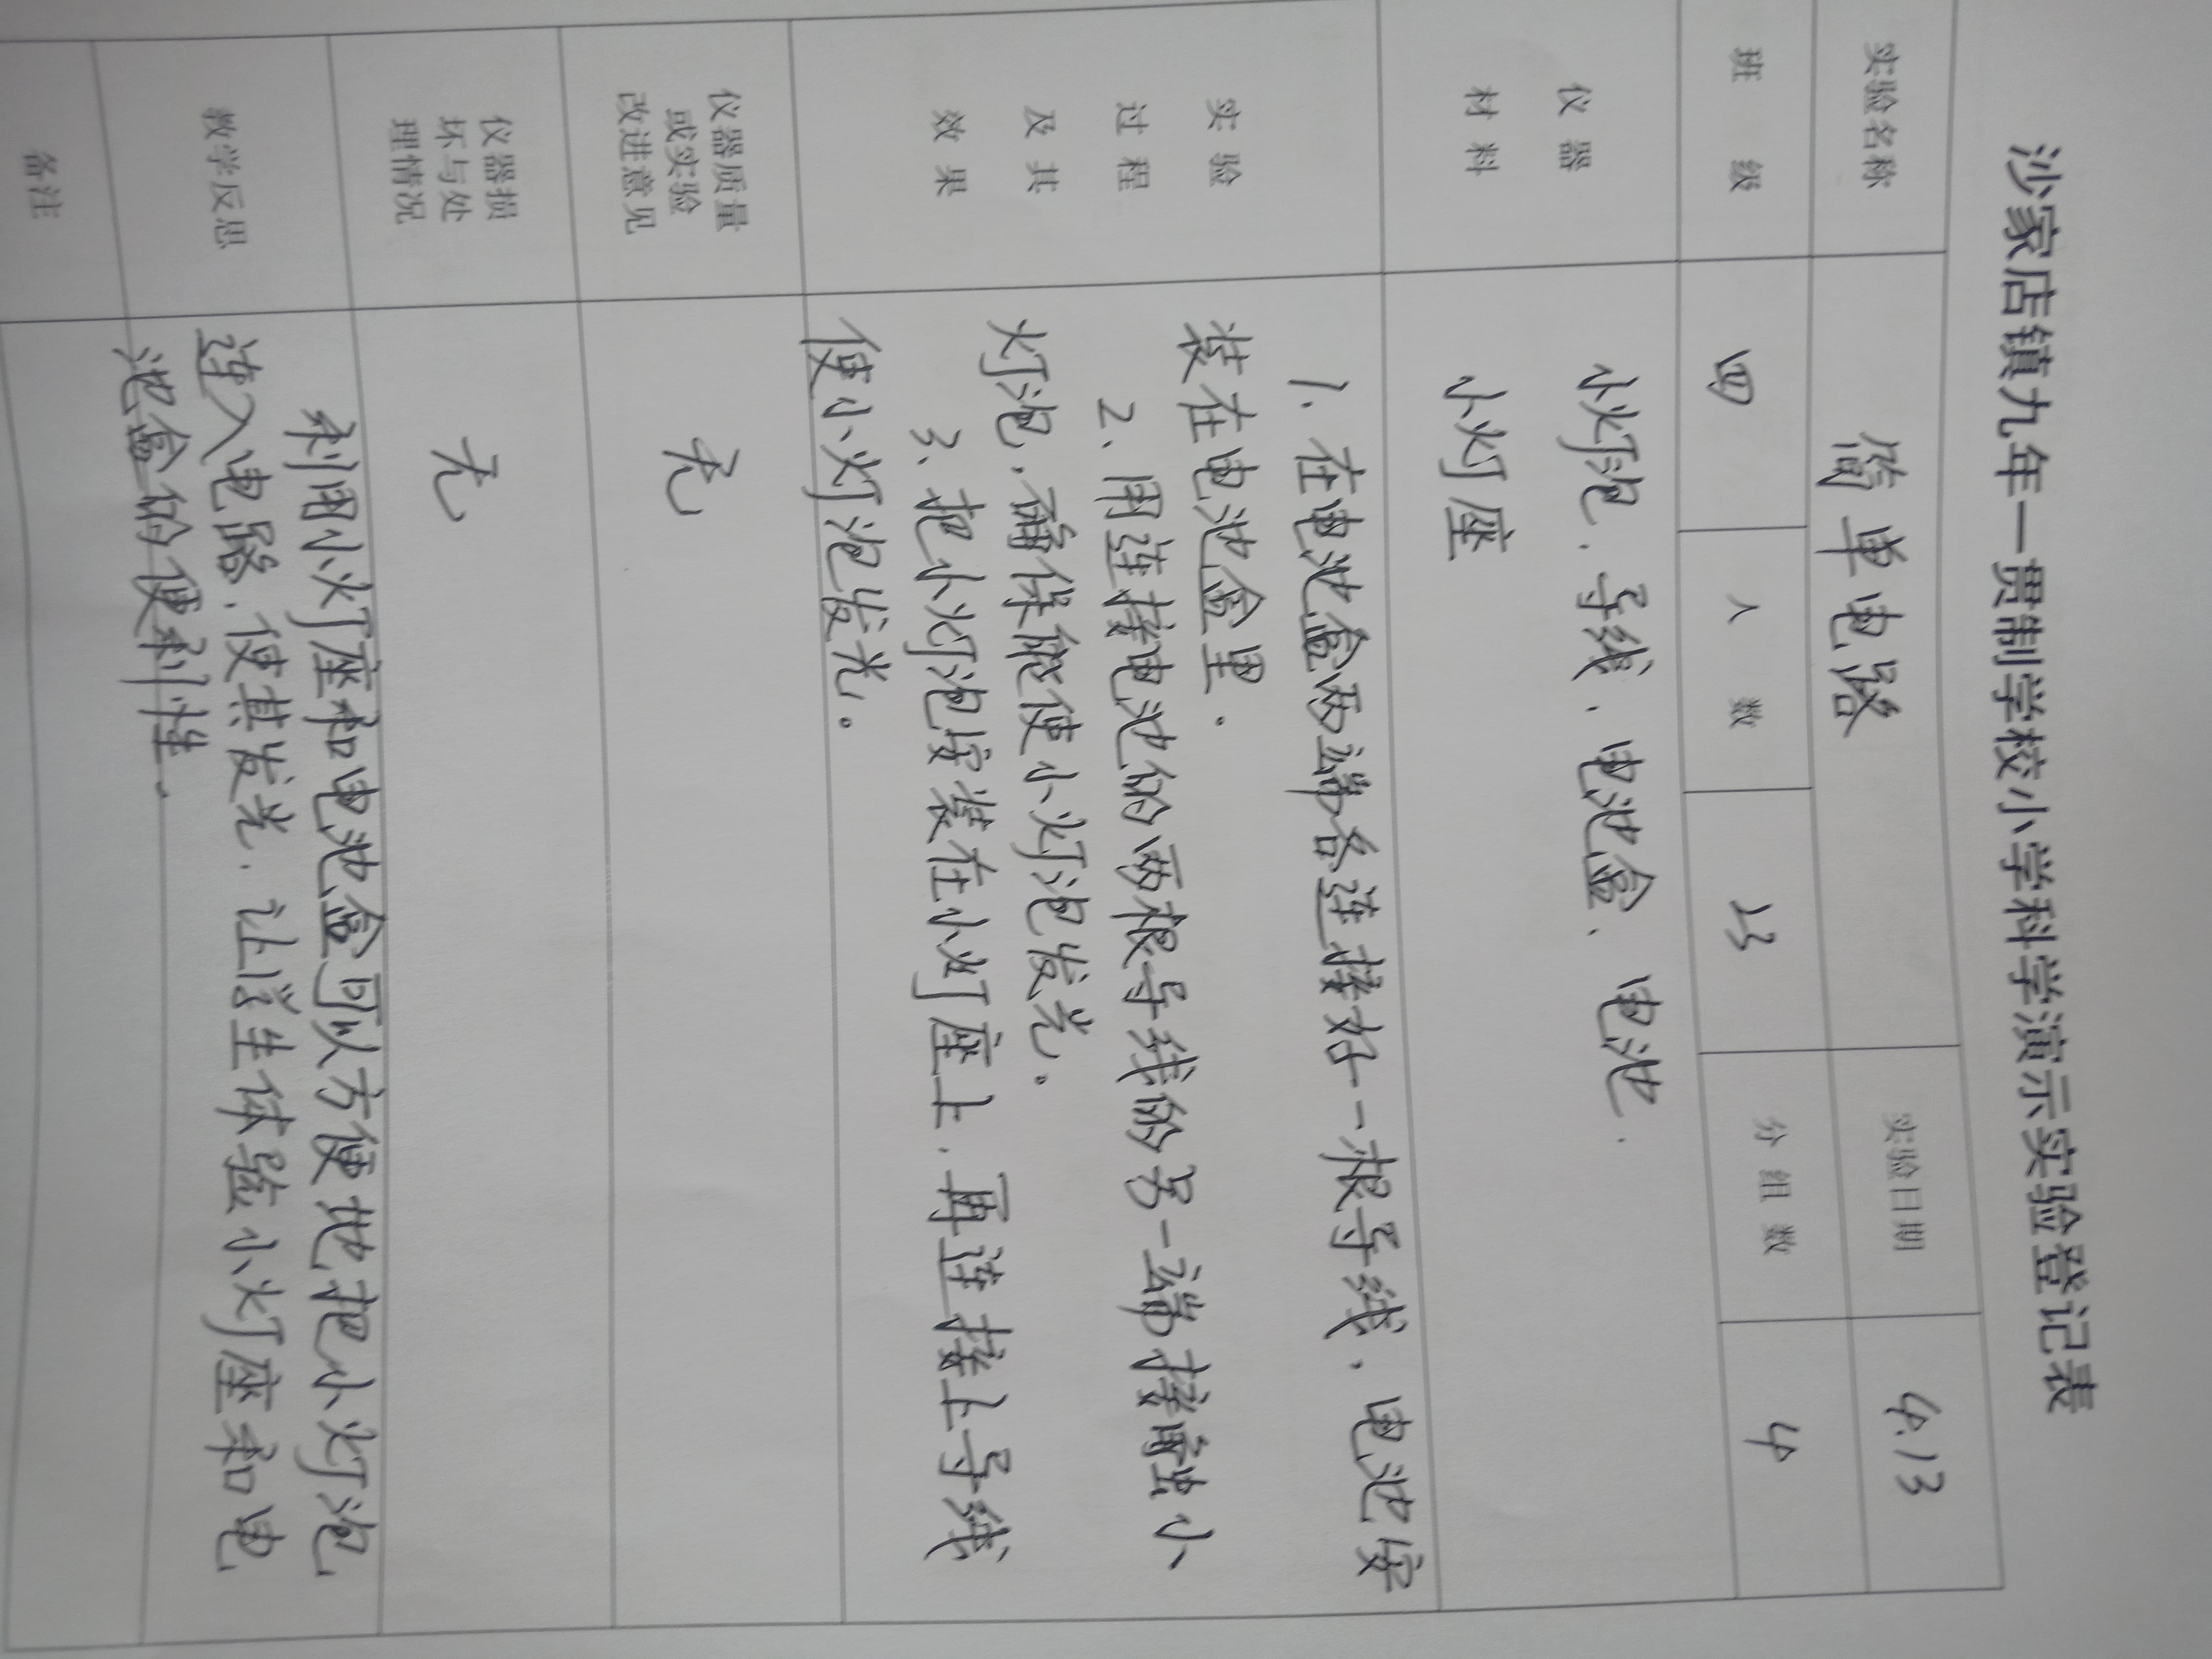 沙家店镇九年一贯制学校小学科学演示实验登记表
实验名称 简单电路 实验日期 4.13
班级 四 人数 23 分组数 4
仪器 小灯泡、导线、电池盒、电池、
材料 小灯座
1、在电池盒两端各连接好一根导线,电池安
实验 装在电池盒里。
过程 2、用连接电池的两根导线的另一端接触小
及其 灯泡,确保能使小灯泡发光。
效果 3、把小灯泡安装在小灯座上,再连接上导线
使小灯泡发光。
仪器质量
或实验 无
改进意见
仪器损
坏与处 无
理情况
利用小灯座和电池盒可以方便地把小灯泡
教学反思 连入电路,使其发光,让学生体验小灯座和电
池盒的便利性。
备注